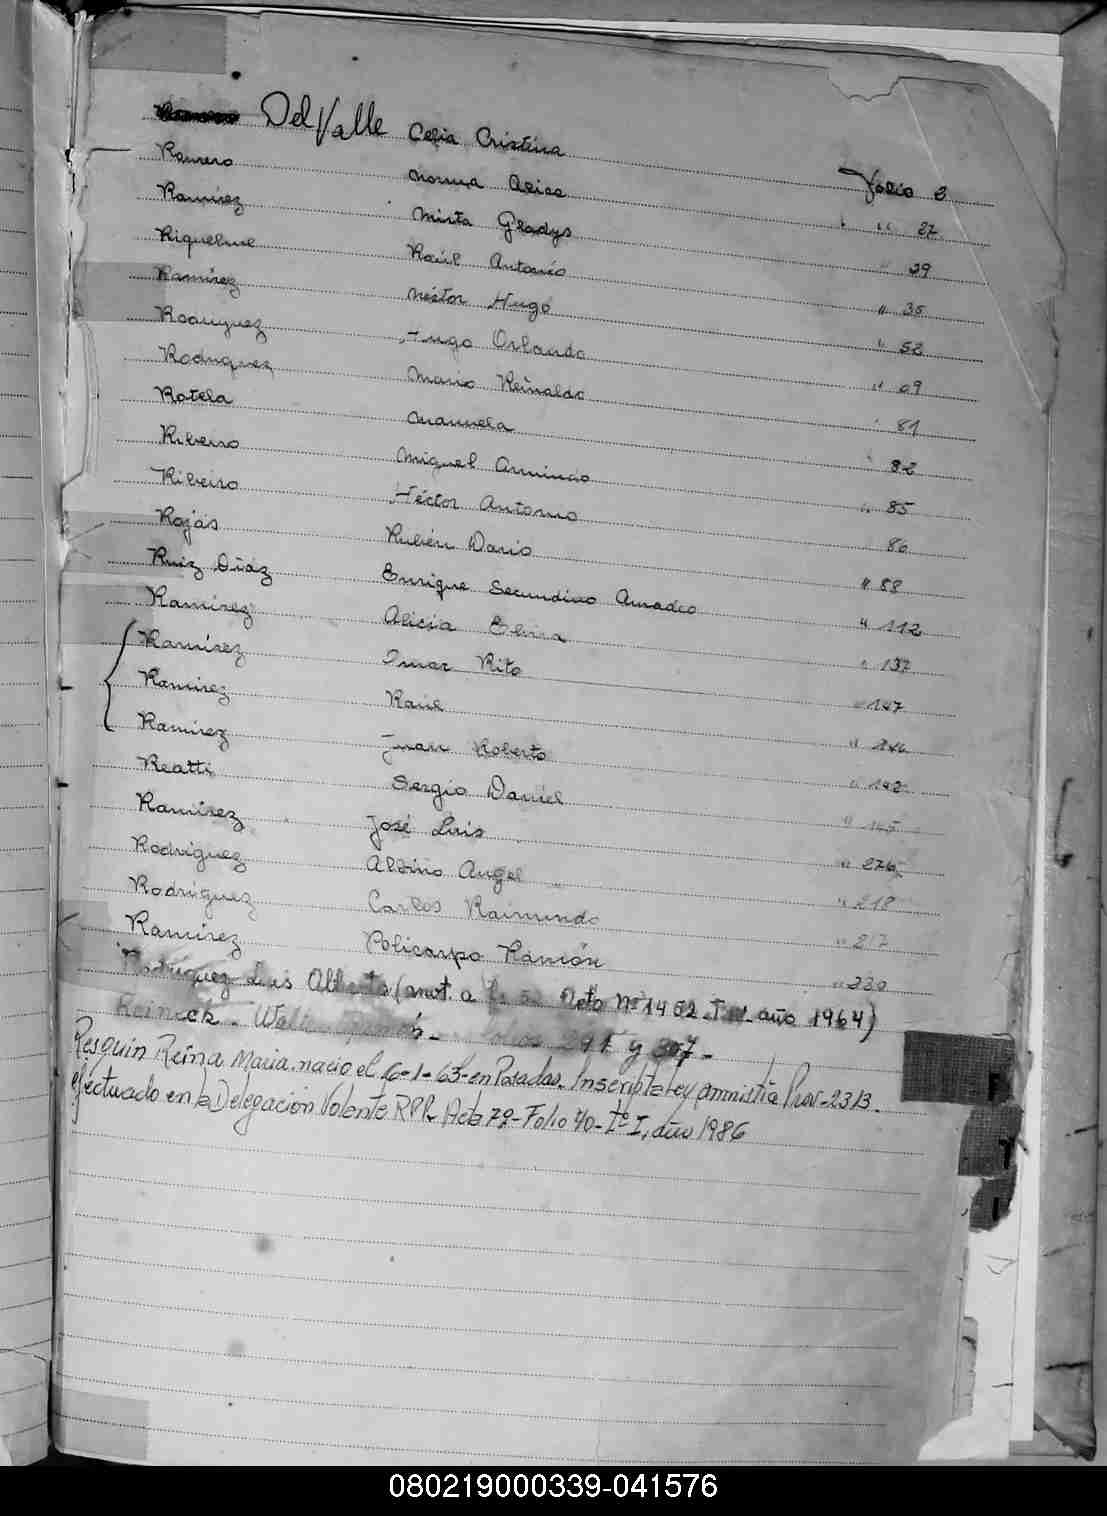 Del Valle Celia Cristina Folio 3
Romero Norma Alicia " 27
Ramírez Mirta Gladys " 29
Riquelme Raúl Antonio " 35
Ramírez Néstor Hugo " 52
Rodriguez Hugo Orlando " 09
Rodriguez Mario Reinaldo " 81
Rotela Manuela " 82
Ribeiro Miguel Armindo " 85
Ribeiro Héctor Antonio 86
Rojas Rubén Dario " 88
Ruiz Díaz Enrique Secundino Amadeo " 112
Ramírez Alicia Elvira " 137
Ramírez Omar Rito " 147
Ramirez Raúl "
Ramirez Juan Roberto " 142
Reatti Sergio Daniel " 145
Ramírez José Luis " 276
Rodriguez Albino Angel " 218
Rodriguez Carlos Raimundo " 217
Ramírez Policarpo Ramón " 220
Rodriguez Luis Alberto (anot. a Acta Nº 1452 año 1964)
Reineck - Ramón - Folios 291 y 307 -
Resquin Reina Maria. nacio el 6-1-63- en Posadas. Inscripta Ley amnistia Prov- 2313.
efectuado en la Delegacion Volante RPP. Acta 79- Folio 40- Tº I, año 1986
080219000339-041576